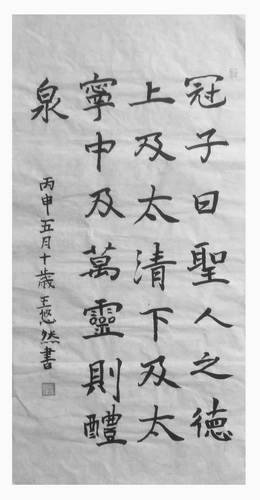 冠子曰聖人之德
上及太清下及太
寧中及萬靈則醴
泉
丙申五月十歲王悠然書